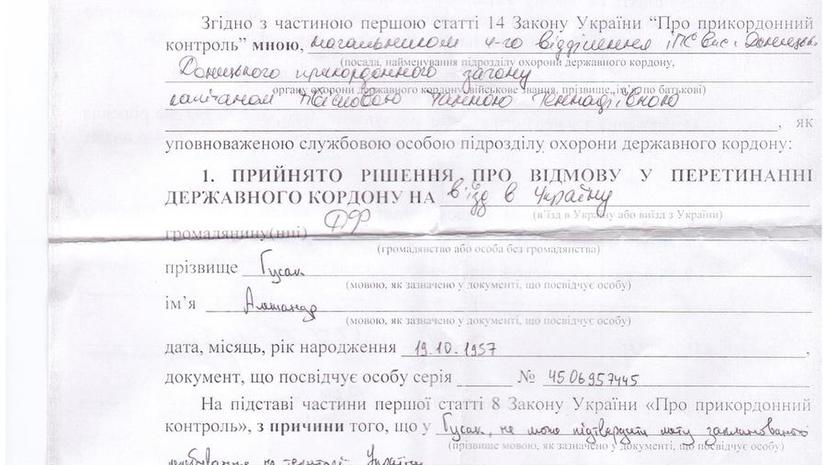 Згідно з частиною першою статті 14 Закону України “Про прикордонний
контроль” мною, начальником 4-го відділення ІПС
(посада, найменування підрозділу охорони державного кордону,
Донецького прикордонного загону
органу охорони державного кордону, військове звання, прізвище, ім’я, по батькові)
капітаном Геннадіївною
, як
уповноваженою службовою особою підрозділу охорони державного кордону:
1. ПРИЙНЯТО РІШЕННЯ ПРО ВІДМОВУ У ПЕРЕТИНАННІ
ДЕРЖАВНОГО КОРДОНУ НА в’їзд в Україну
(в’їзд в Україну або виїзд з України)
громадянину(нці)
(громадянство або особа без громадянства)
прізвище Гусак
(мовою, як зазначено у документі, що посвідчує особу)
ім’я Александр
(мовою, як зазначено у документі, що посвідчує особу)
дата, місяць, рік народження 19.10.1957 ,
документ, що посвідчує особу серія № 4506957445
На підставі частини першої статті 8 Закону України «Про прикордонний
контроль», з причини того, що у Гусак, не може підтвердити мету запланованого
(прізвище мовою, як зазначено у документі, що посвідчує особу)
перебування на території України